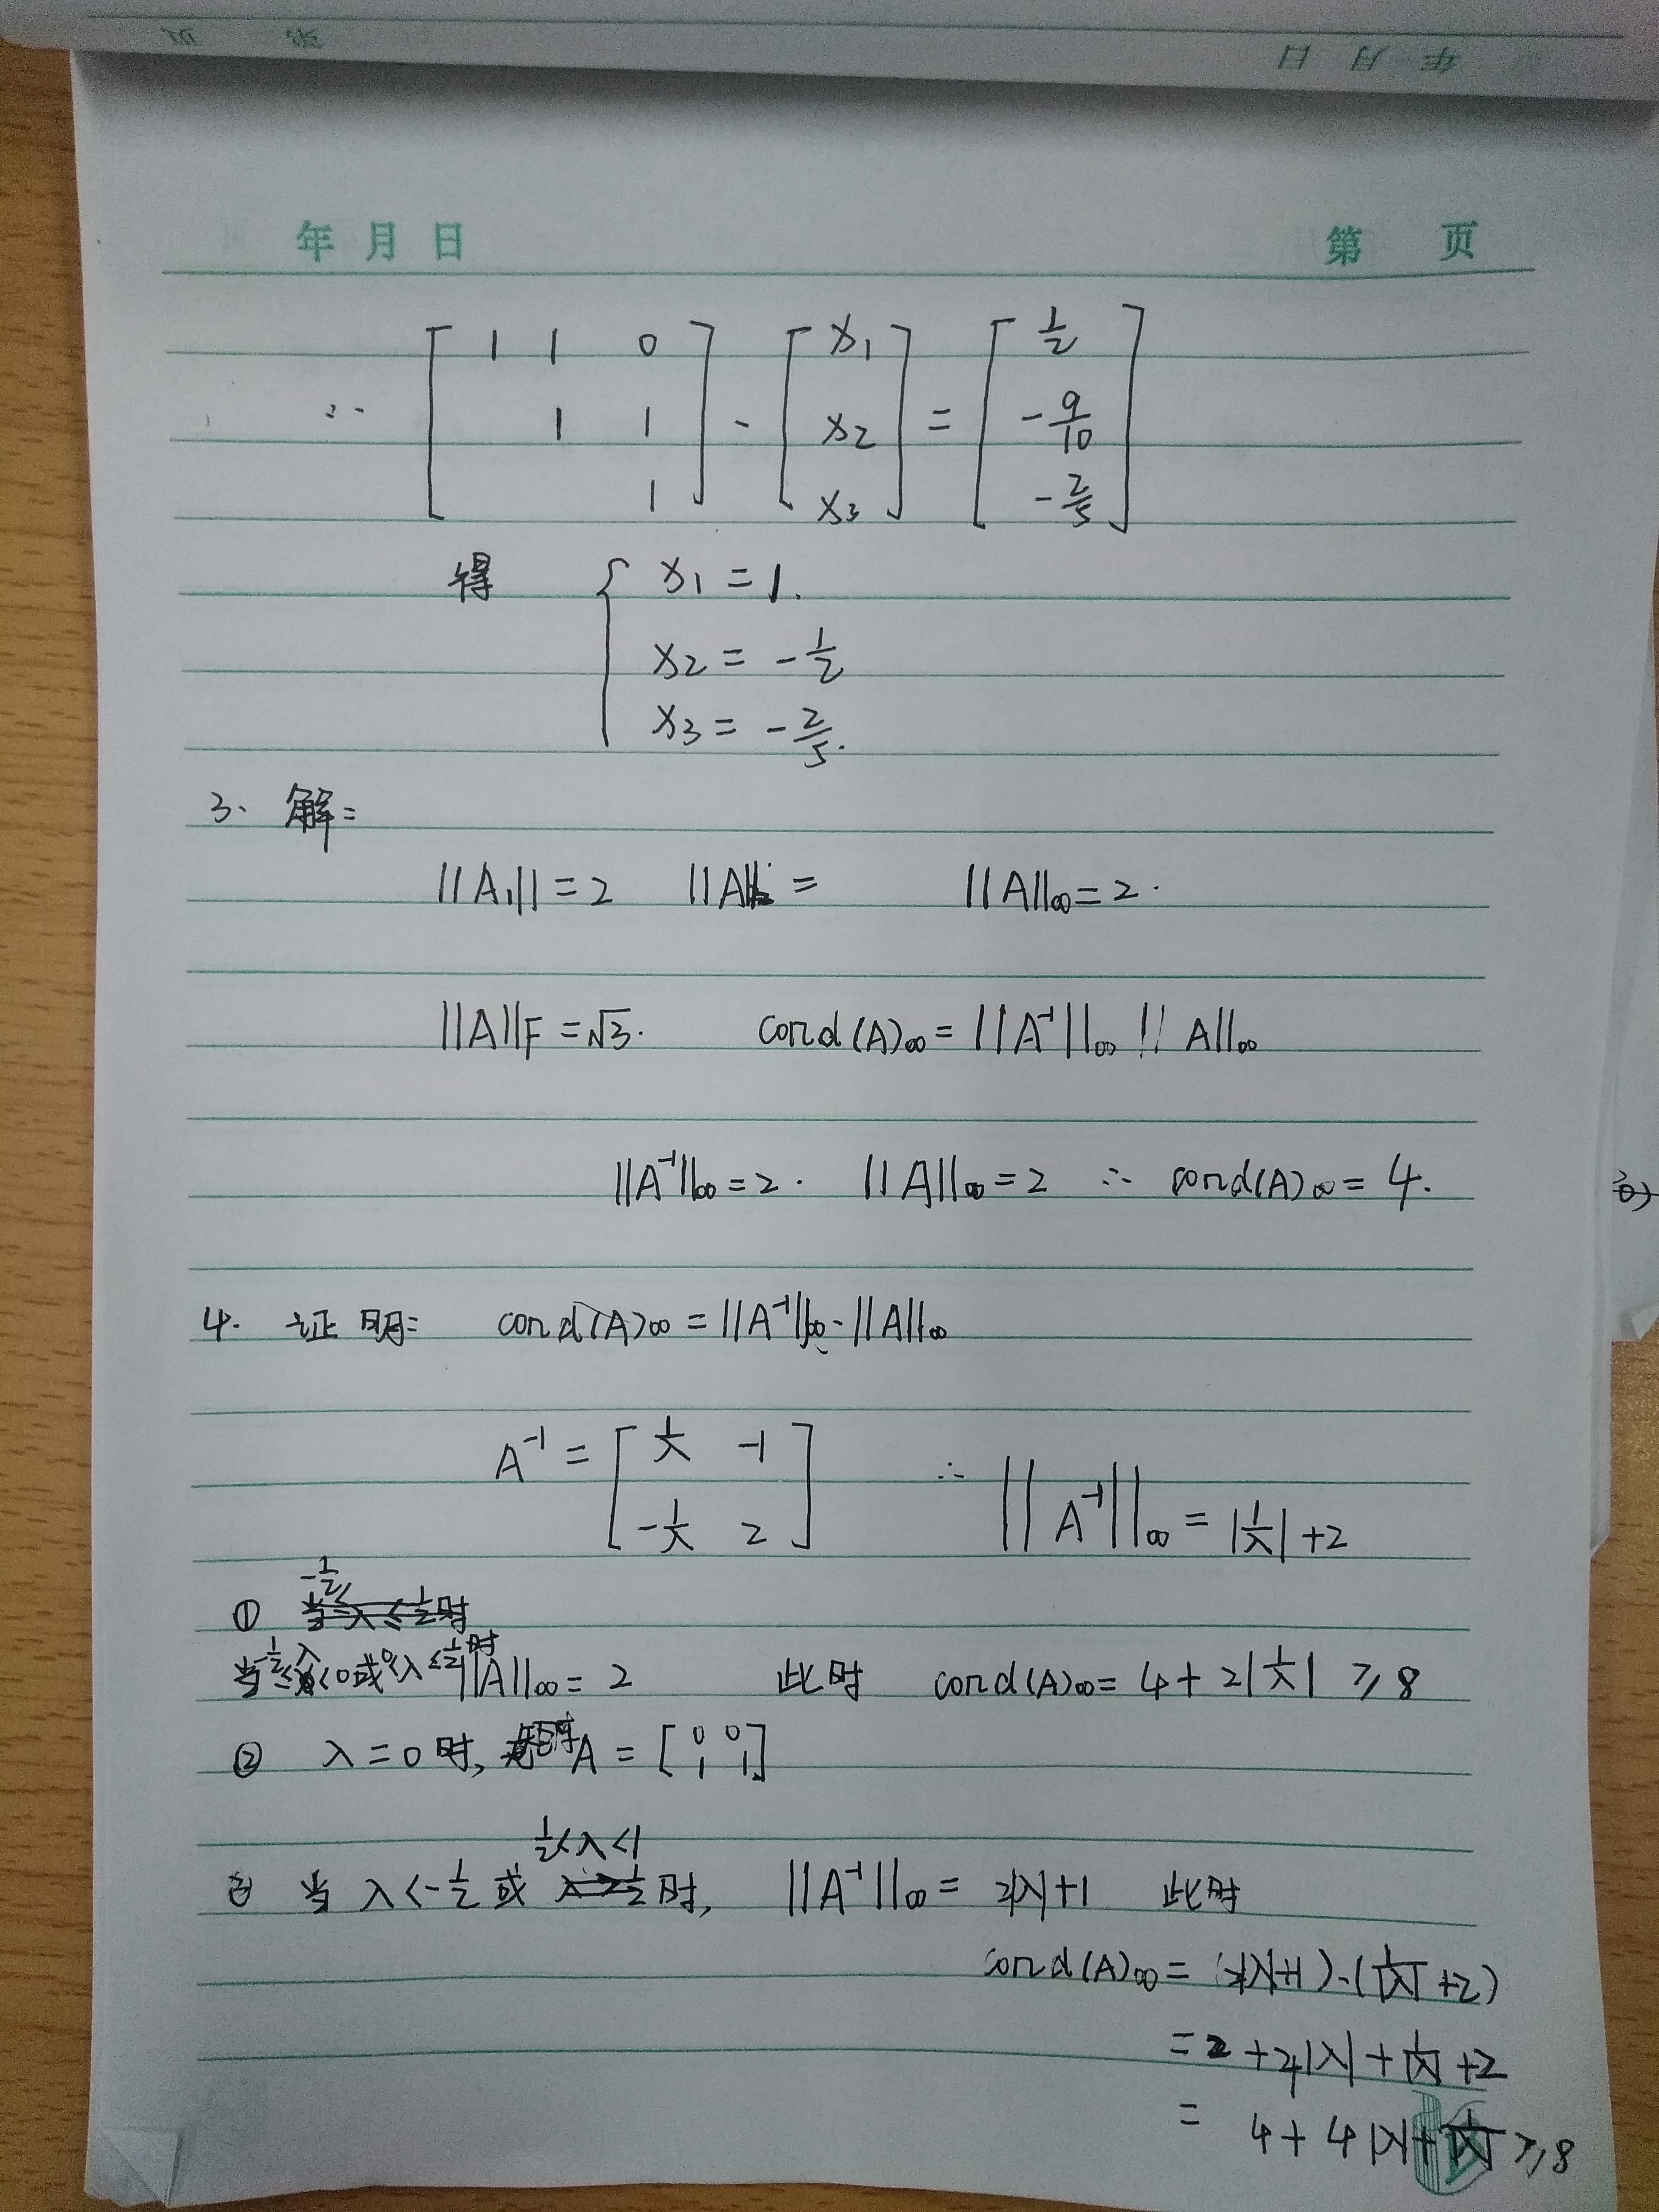 年 月 日
年 月 日 第 页
∴ [ 1 1 0 ; 1 1 ; 1 ] · [ x1 ; x2 ; x3 ] = [ 1/2 ; -9/10 ; -2/5 ]
得 { x1 = 1.
x2 = -1/2
x3 = -2/5.
3. 解:
||A1|| = 2 ||A||2 = ||A||∞ = 2.
||A||F = √3. cond(A)∞ = ||A⁻¹||∞ ||A||∞
||A⁻¹||∞ = 2. ||A||∞ = 2 ∴ cond(A)∞ = 4.
4. 证明: cond(A)∞ = ||A⁻¹||∞·||A||∞
A⁻¹ = [ 1/λ -1 ; -1/λ 2 ] ∴ ||A⁻¹||∞ = |1/λ| + 2
-1/2≤
① 当 λ ≤ 1/2 时
当 -1/2 ≤ λ < 0 或 0 < λ ≤ 1/2 时 ||A||∞ = 2 此时 cond(A)∞ = 4 + 2|1/λ| ≥ 8
② λ = 0 时, A = [ 0 0 ; 1 1 ]
1/2 < λ < 1
③ 当 λ < -1/2 或 λ > 1/2 时, ||A⁻¹||∞ = 2|λ| + 1 此时
cond(A)∞ = (2|λ|+1)·(1/|λ| + 2)
= 2 + 4|λ| + 1/|λ| + 2
= 4 + 4|λ| + 1/|λ| ≥ 8